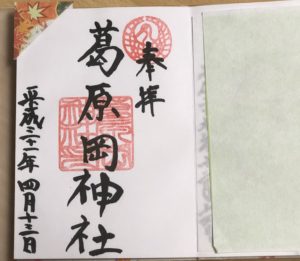 奉拝
葛原岡神社
平成三十一年四月十三日